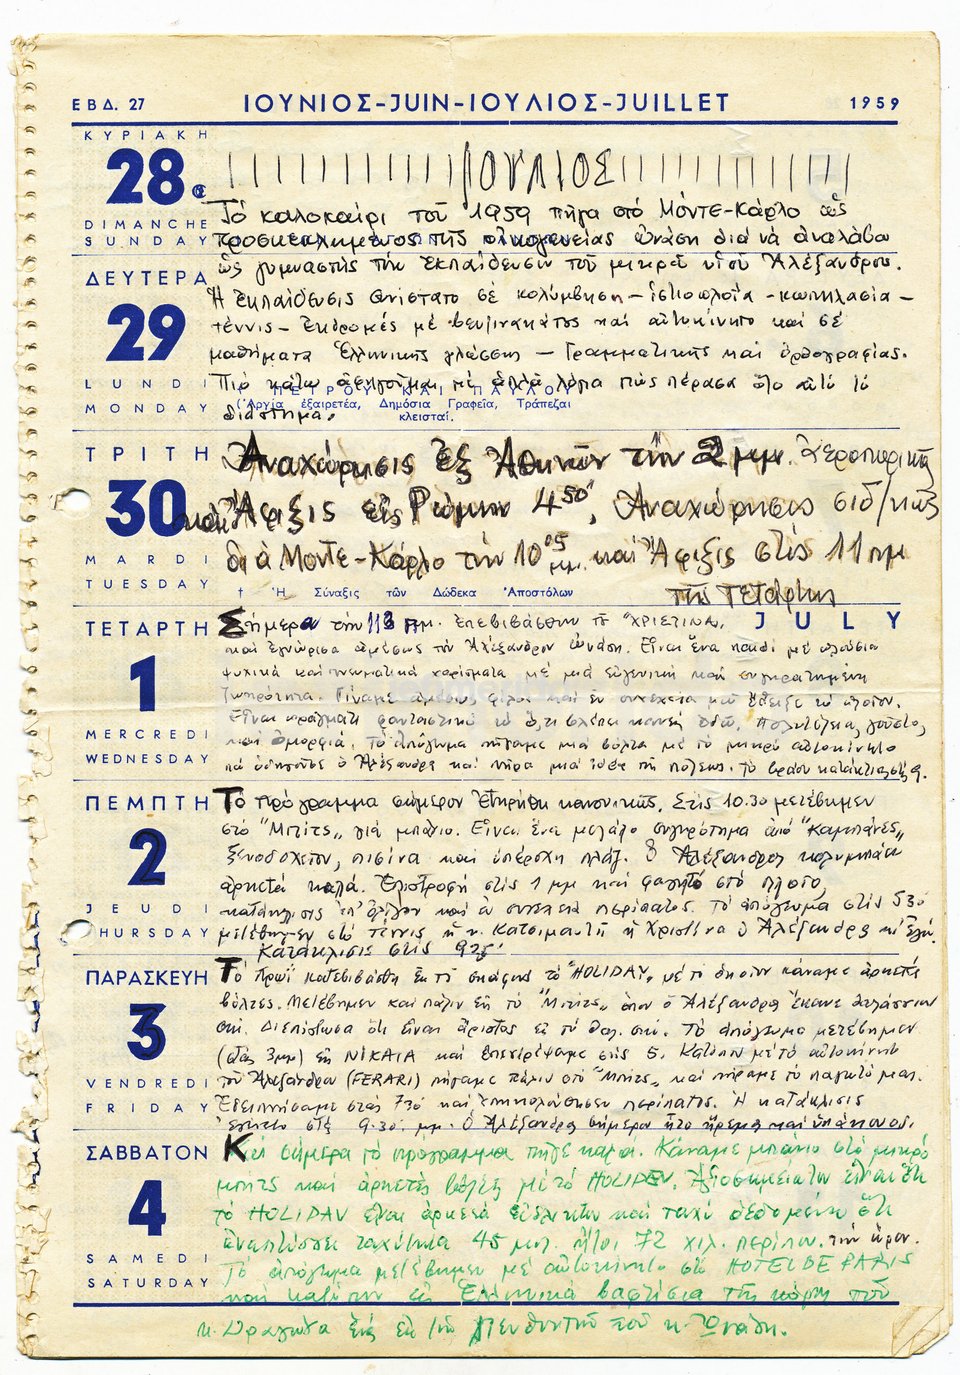 ΕΒΔ. 27 ΙΟΥΝΙΟΣ-JUIN-ΙΟΥΛΙΟΣ-JUILLET 1959
ΚΥΡΙΑΚΗ
28
DIMANCHE
SUNDAY
ΙΟΥΛΙΟΣ
Τό καλοκαίρι τοῦ 1959 πῆγα στό Μόντε-Κάρλο ὡς
προσκεκλημένος τῆς οἰκογενείας Ὠνάση διά νά ἀναλάβω
ὡς γυμναστής τήν ἐκπαίδευσιν τοῦ μικροῦ υἱοῦ Ἀλεξάνδρου.
ΔΕΥΤΕΡΑ
29
LUNDI
MONDAY
Ἡ ἐκπαίδευσις συνίστατο σέ κολύμβηση - ἱστιοπλοΐα - κωπηλασία -
τέννις - ἐκδρομές μέ βενζινακάτος καί αὐτοκίνητο καί σέ
μαθήματα Ἑλληνικῆς γλώσσης - Γραμματικῆς καί ὀρθογραφίας.
Πιό κάτω ἀφηγοῦμαι μέ ἁπλά λόγια πῶς πέρασα ὅλο αὐτό τό
ΠΕΤΡΟΥ ΚΑΙ ΠΑΥΛΟΥ
(Ἀργία ἐξαιρετέα, Δημόσια Γραφεῖα, Τράπεζαι
κλεισταί.
διάστημα.
ΤΡΙΤΗ
30
MARDI
TUESDAY
Ἀναχώρησις ἐξ Ἀθηνῶν τήν 2 μμ. Ἀεροπορικῶς
καί Ἄφιξις εἰς Ρώμην 4 50', Ἀναχώρησις σιδ/κῶς
διά Μοντε-Κάρλο τήν 10 05 μμ. καί Ἄφιξις στίς 11 πμ
τῆς Τετάρτης
† Ἡ Σύναξις τῶν Δώδεκα Ἀποστόλων
ΤΕΤΑΡΤΗ
1
MERCREDI
WEDNESDAY
JULY
Σήμερα τήν 11 πμ. ἐπεβιβάσθην τῆς "ΧΡΙΣΤΙΝΑ,
καί ἐγνώρισα ἀμέσως τόν Ἀλέξανδρον Ὠνάση. Εἶναι ἕνα παιδί μέ πλούσια
ψυχικά καί πνευματικά χαρίσματα μέ μιά εὐγενική καί συγκρατημένη
ζωηρότητα. Γίναμε ἀμέσως φίλοι καί ἐν συνεχεία μοῦ ἔδειξε τό πλοῖον.
Εἶναι πράγματι φανταστικό τό ὅ,τι βλέπει κανείς ἐδῶ. Πολυτέλεια, γοῦστο,
καί ὀμορφιά. Τό ἀπόγευμα πήγαμε μιά βόλτα μέ τό μικρό αὐτοκίνητο
πού ὁδηγοῦσε ὁ Ἀλέξανδρος καί πῆρα μιά ἰδέα τῆς πόλεως. Τό βράδυ κατάκλισις στίς 9.
ΠΕΜΠΤΗ
2
JEUDI
THURSDAY
Τό πρόγραμμα σήμερον ἐτηρήθη κανονικῶς. Στίς 10.30 μετέβημεν
στό "Μπίτς,, γιά μπάνιο. Εἶναι ἕνα μεγάλο συγκρότημα ἀπό "καμπάνες,,
ξενοδοχεῖον, πισίνα καί ὑπέροχη πλάζ. Ὁ Ἀλέξανδρος κολυμπάει
ἀρκετά καλά. Ἐπιστροφή στίς 1 μμ καί φαγητό στό πλοῖο,
κατάκλισις ἐπ' ὀλίγον καί ἐν συνεχεία περίπατος. Τό ἀπόγευμα στίς 5 30
μετέβημεν στό τέννις ἡ κ. Κατσιμαντῆ ἡ Χριστίνα ὁ Ἀλέξανδρος κι' ἐγώ.
Κατάκλισις στίς 9 25'
ΠΑΡΑΣΚΕΥΗ
3
VENDREDI
FRIDAY
Τό πρωί κατεβιβάσθη ἐκ τοῦ σκάφους τό "HOLIDAY, μέ τό ὁποῖον κάναμε ἀρκετές
βόλτες. Μετέβημεν καί πάλιν εἰς τό "Μπίτς,, ὅπου ὁ Ἀλέξανδρος ἔκανε θαλάσσιον
σκί. Διεπίστωσα ὅτι εἶναι ἄριστος εἰς τό θαλ. σκί. Τό ἀπόγευμα μετέβημεν
(στάς 3 μμ) εἰς ΝΙΚΑΙΑ καί ἐπεστρέψαμε στίς 5. Κατόπιν μέ τό αὐτοκίνητο
τοῦ Ἀλεξάνδρου (FERARI) πήγαμε πάλιν στό "Μπίτς,, καί πήραμε τό παγωτό μας.
Ἐδειπνήσαμε στάς 7 30 καί ἐπηκολούθησεν περίπατος. Ἡ κατάκλισις
ἐγένετο στάς 9.30' μμ. Ὁ Ἀλέξανδρος σήμερον ἦτο ἤρεμος καί ὑπάκουος.
ΣΑΒΒΑΤΟΝ
4
SAMEDI
SATURDAY
Καί σήμερα τό πρόγραμμα πῆγε καλά. Κάναμε μπάνιο στό μικρό
μπίτς καί ἀρκετές βόλτες μέ τό HOLIDEN. Ἀξιοσημείωτον εἶναι ὅτι
τό HOLIDAY εἶναι ἀρκετά εὐέλικτον καί ταχύ δεδομένου ὅτι
ἀναπτύσσει ταχύτητα 45 μιλ. ἤτοι 72 χιλ. περίπου. τήν ὥραν.
Τό ἀπόγευμα μετέβημεν μέ αὐτοκίνητο στό HOTEL DE PARIS
καί κατόπιν εἰς Ἑλληνικά βαφτίσια τῆς κόρης τοῦ
κ. Δραγώτα ἑνός ἐκ τῶν Διευθυντῶν τοῦ κ. Ὠνάση.